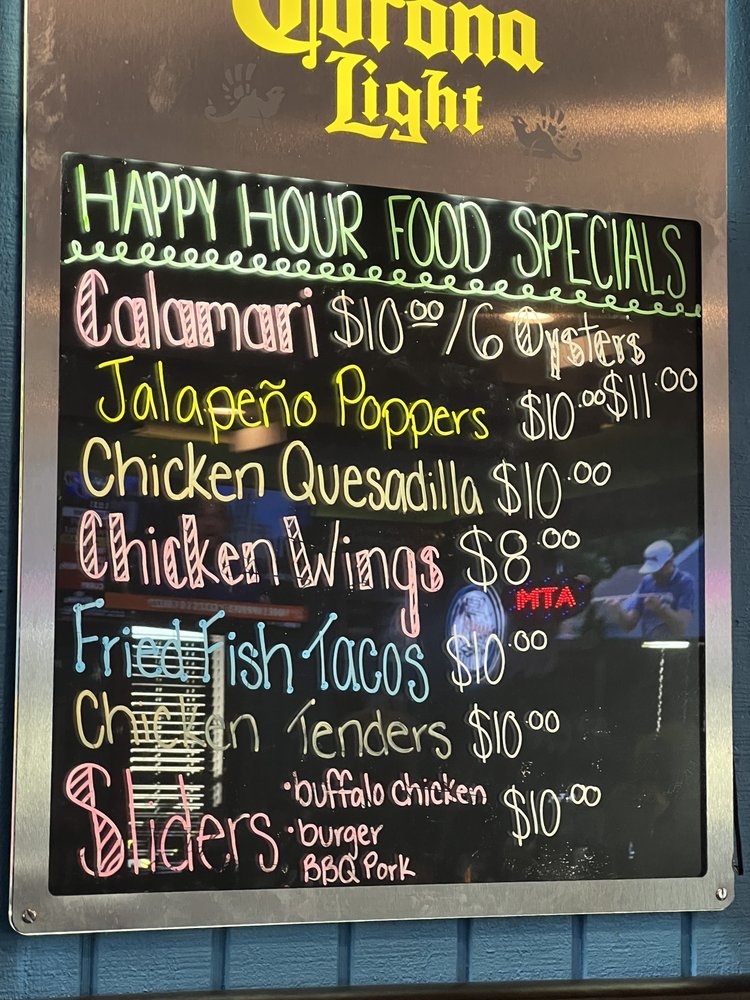 Corona
Light
HAPPY HOUR FOOD SPECIALS
Calamari $10.00/6 Oysters
$11.00
Jalapeño Poppers $10.00
Chicken Quesadilla $10.00
Chicken Wings $8.00
MTA
Fried Fish Tacos $10.00
Chicken Tenders $10.00
Sliders •buffalo chicken $10.00
•burger
BBQ Pork